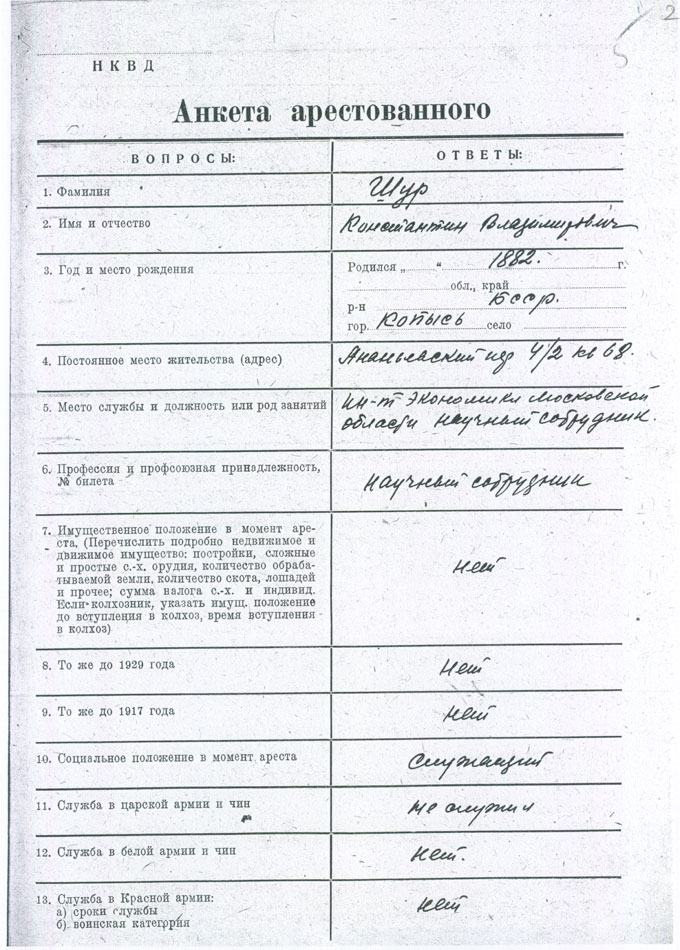 2
5
НКВД
Анкета арестованного
ВОПРОСЫ:
ОТВЕТЫ:
1. Фамилия
Шур
2. Имя и отчество
Константин Владимирович
3. Год и место рождения
Родился „ “ 1882. г.
обл., край
р-н БССР.
гор. Копысь село
4. Постоянное место жительства (адрес)
Ананьевский пер 4/2 кв 68.
5. Место службы и должность или род занятий
Ин-т Экономики Московской
области научный сотрудник.
6. Профессия и профсоюзная принадлежность,
№ билета
научный сотрудник
7. Имущественное положение в момент аре-
ста. (Перечислить подробно недвижимое и
движимое имущество: постройки, сложные
и простые с.-х. орудия, количество обраба-
тываемой земли, количество скота, лошадей
и прочее; сумма налога с.-х. и индивид.
Если колхозник, указать имущ. положение
до вступления в колхоз, время вступления
в колхоз)
нет
8. То же до 1929 года
нет
9. То же до 1917 года
нет
10. Социальное положение в момент ареста
служащий
11. Служба в царской армии и чин
не служил
12. Служба в белой армии и чин
нет.
13. Служба в Красной армии:
а) сроки службы
б) воинская категория
нет